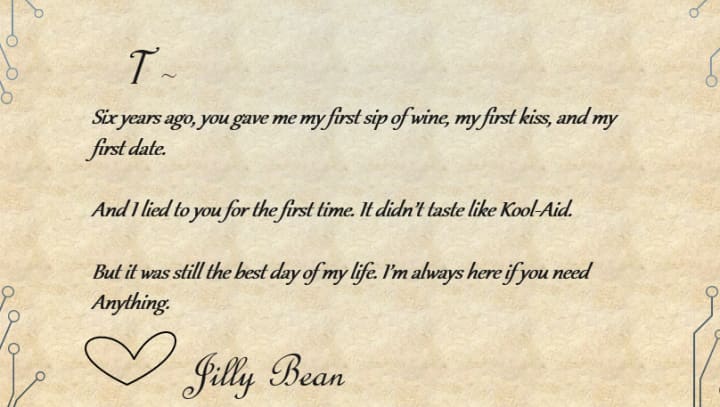 T ~
Six years ago, you gave me my first sip of wine, my first kiss, and my
first date.
And I lied to you for the first time. It didn't taste like Kool-Aid.
But it was still the best day of my life. I'm always here if you need
Anything.
Jilly Bean